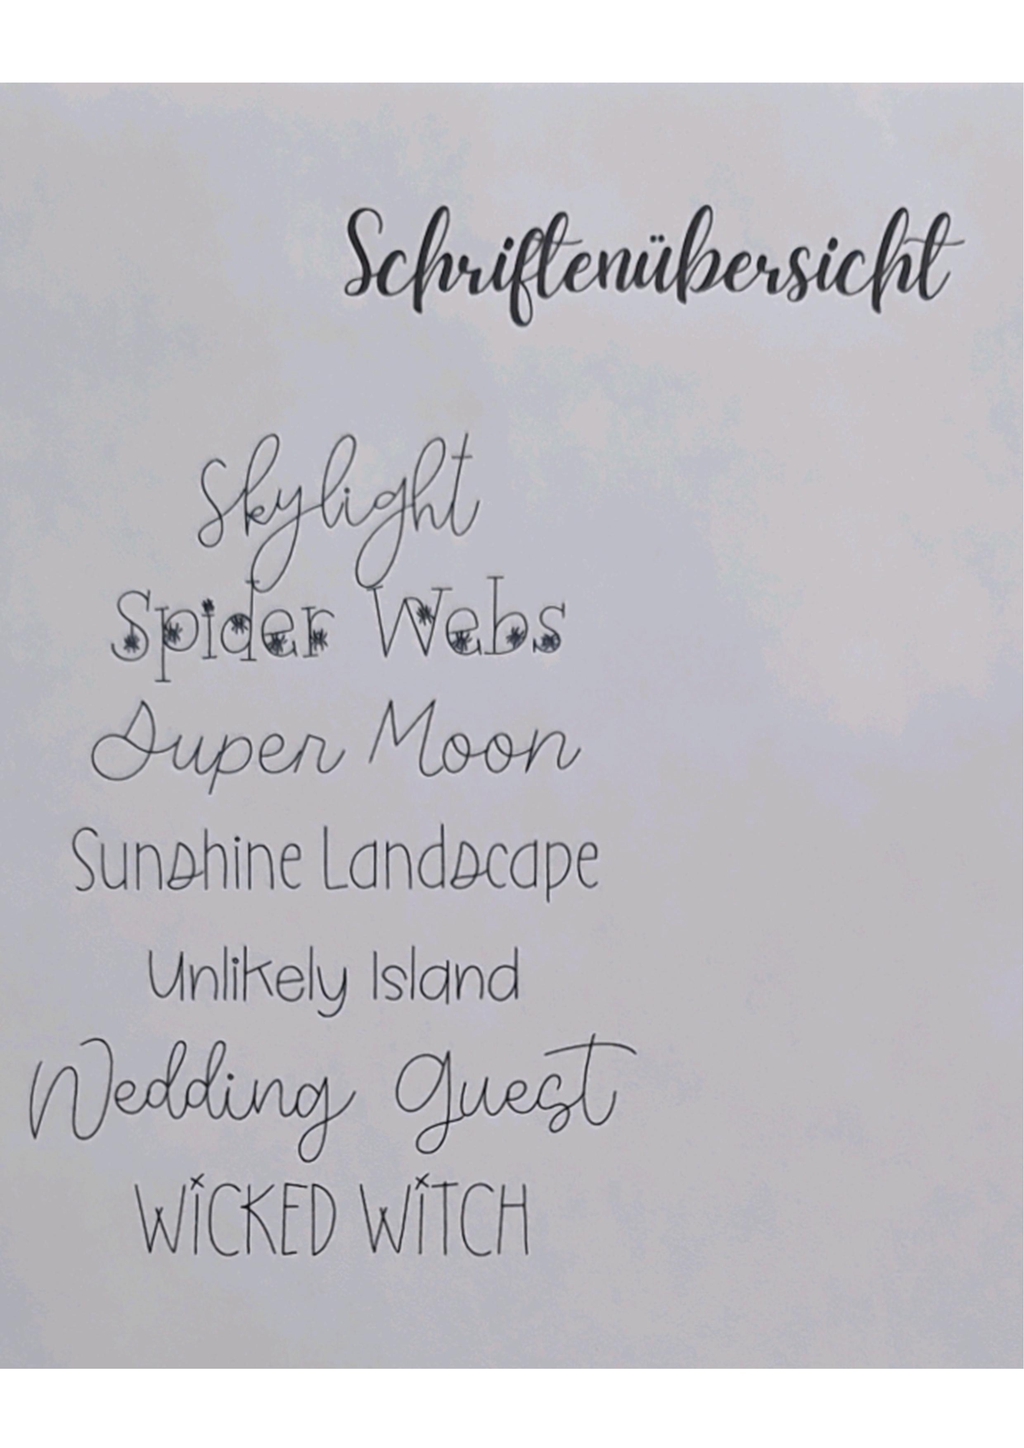 Schriftenübersicht
Skylight
Spider Webs
Super Moon
Sunshine Landscape
Unlikely Island
Wedding Guest
WiCKED WiTCH